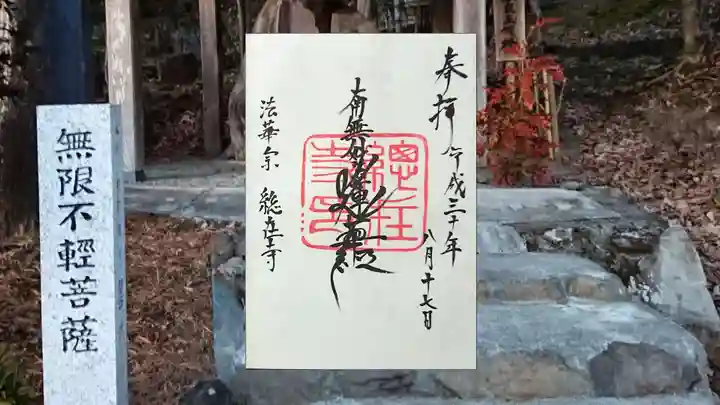 奉拝 平成三十年
八月十七日
南無妙法蓮華経
法華宗 総在寺
無限不輕菩薩